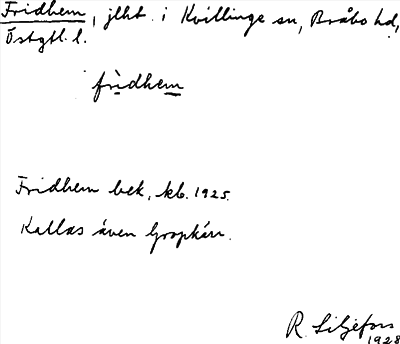 Fridhem, jlht. i Kvillinge sn, Bråbo hd,
Östgtl. l.
fri̇̀dhem
Fridhem bek, kb. 1925.
Kallas även Gropkärr.
R. Liljefors
1928